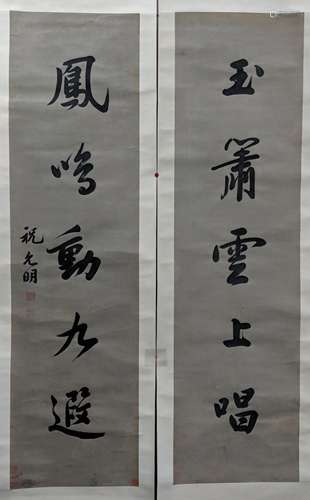 玉簫雲上唱
鳳鳴動九遐
祝允明